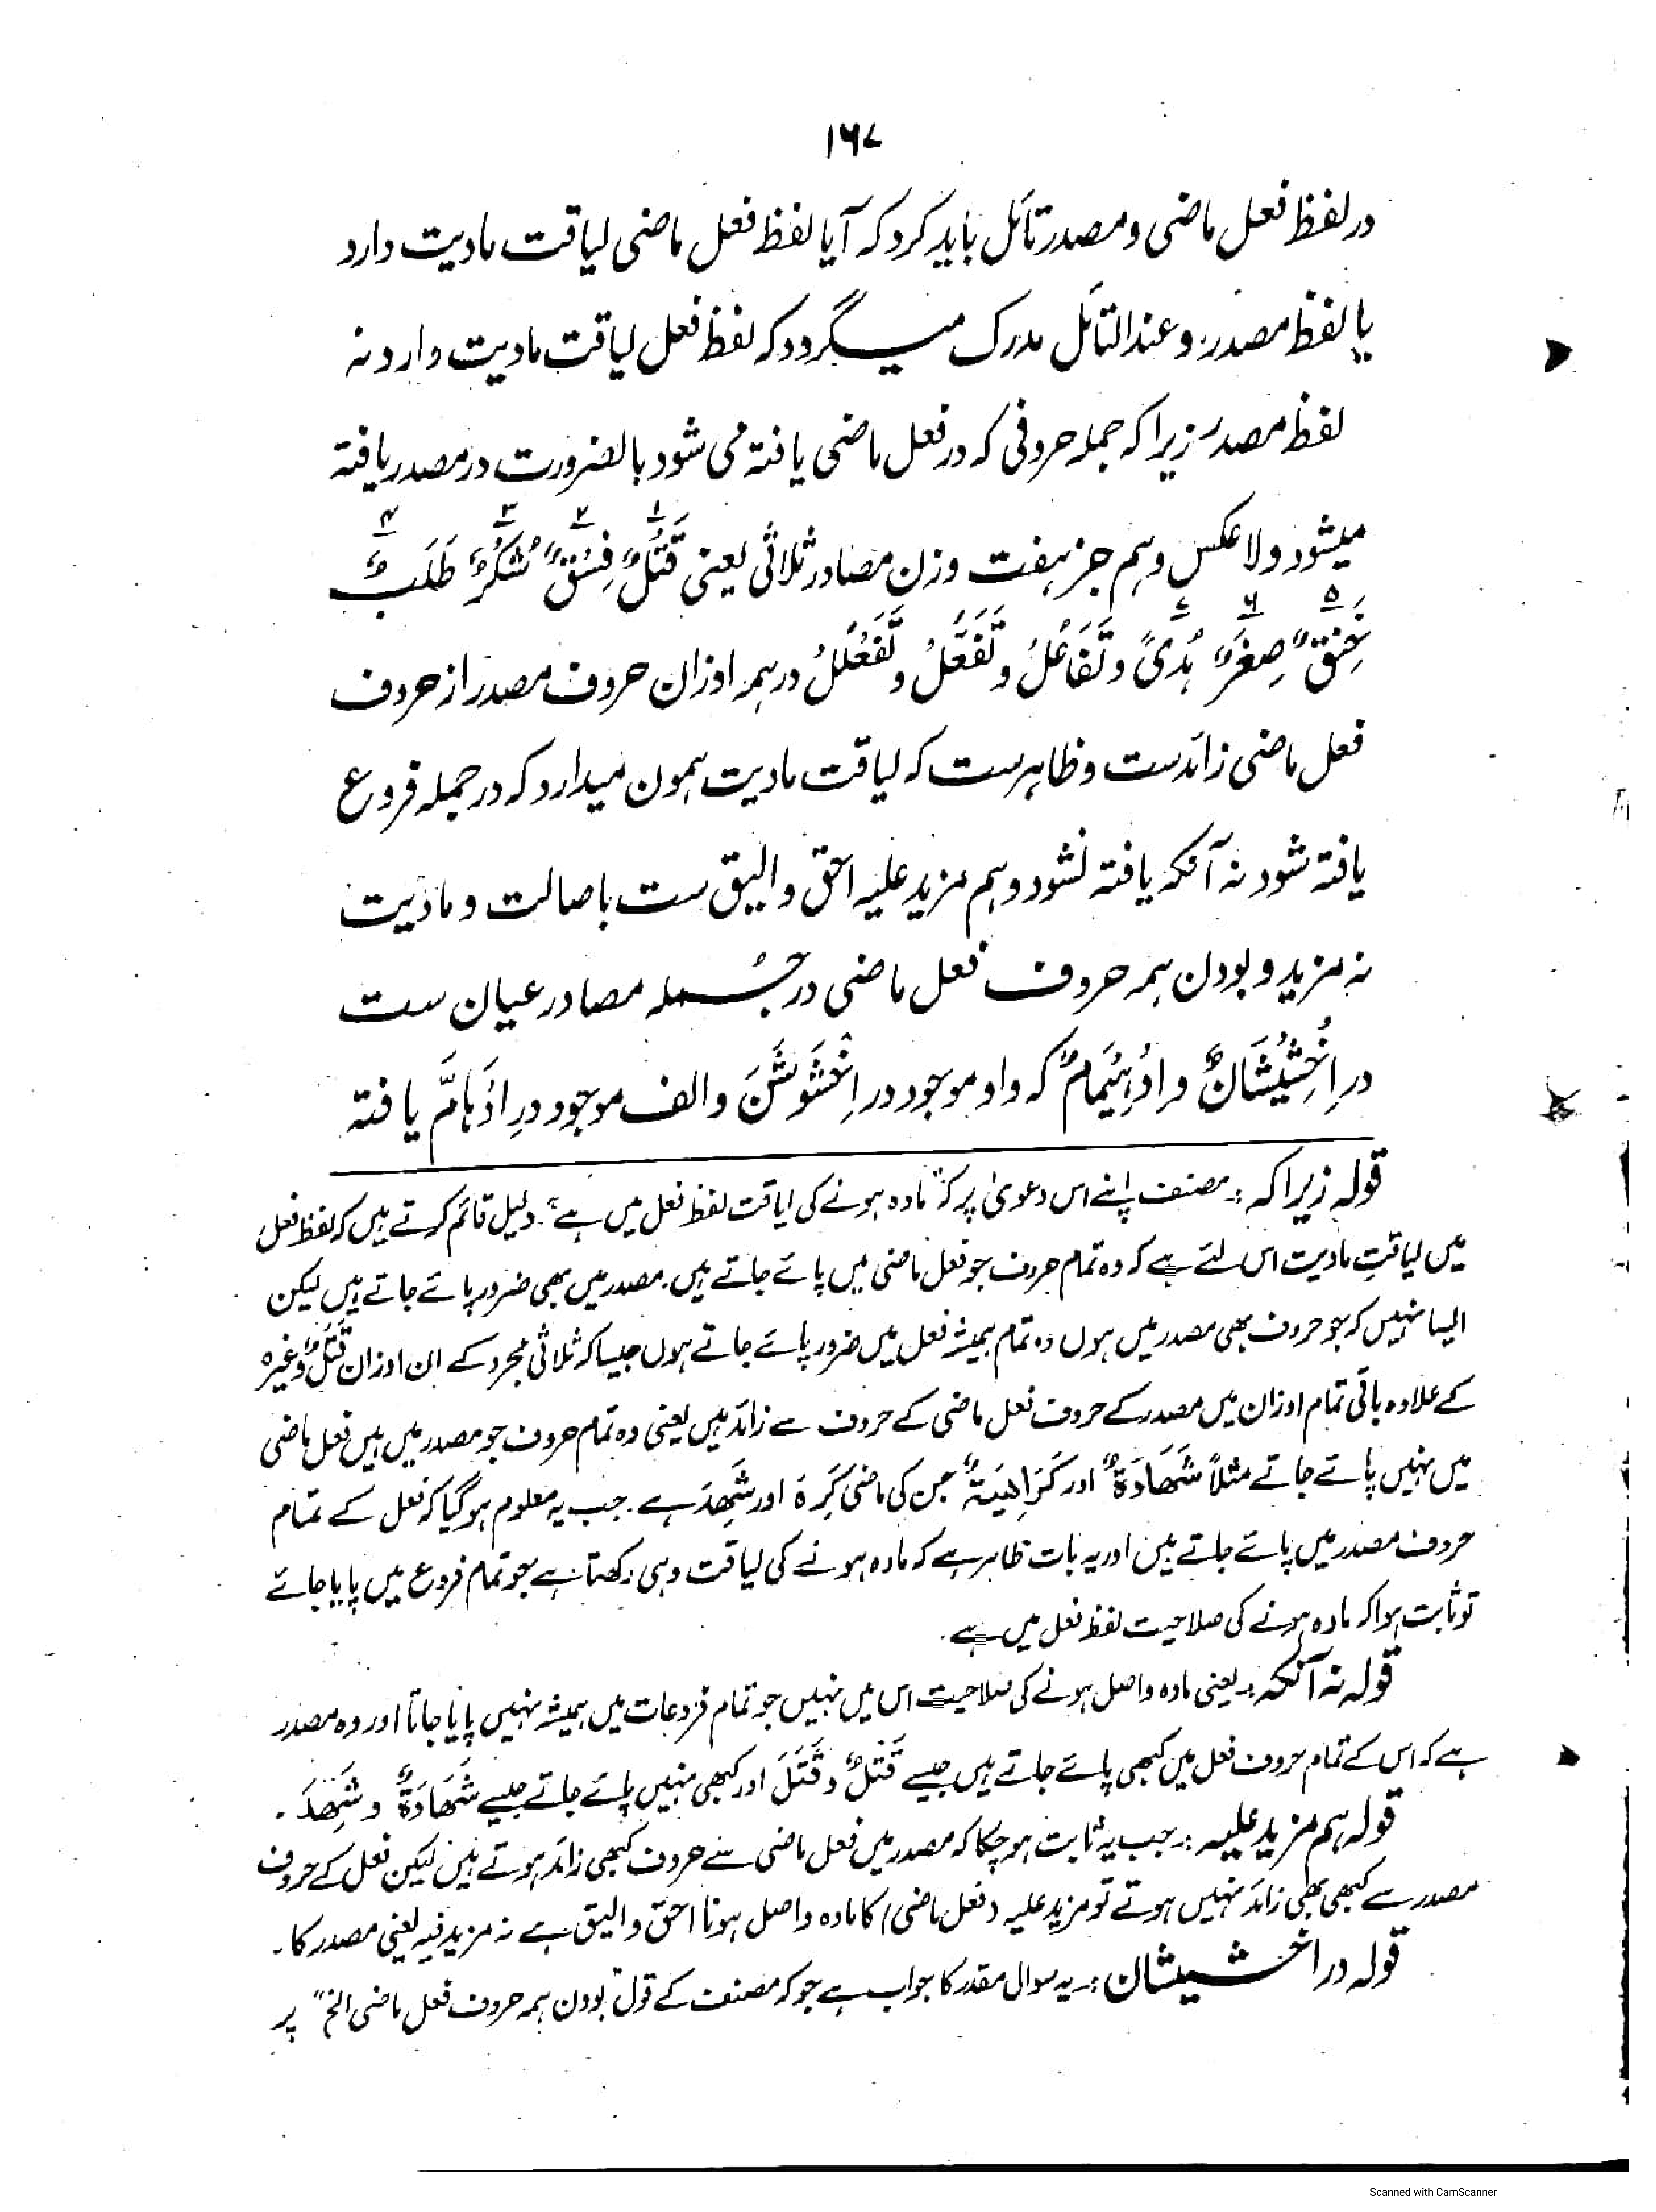 ۱۶۷
در لفظ فعل ماضی و مصدر تأمل باید کرد که آیا لفظ فعل ماضی لیاقت مادیت دارد
یا لفظ مصدر و عند التأمل مدرک میگردد که لفظ فعل لیاقت مادیت دارد نه
لفظ مصدر زیرا که جمله حروفی که در فعل ماضی یافته می شود بالضرورت در مصدر یافته
میشود ولا عکس وہم جز ہفت وزن مصادر ثلاثی یعنی قَتْلٌ ۱ فِسْقٌ ۲ شُكْرٌ ۳ طَلَبٌ ۴
خَنِقٌ ۵ صِغَرٌ ۶ ہُدًى ۷ و تَفَاعُلٌ و تَفَعُّلٌ و تَفَعْلُلٌ در ہمہ اوزان حروف مصدر از حروف
فعل ماضی زائدست و ظاہرست که لیاقت مادیت ہمون میدارد که در جمله فروع
یافته شود نه آنکه یافته نشود وہم مزید علیہ احق و الیق ست باصالت و مادیت
نه مزید و بودن ہمہ حروف فعل ماضی در جُمله مصادر عیان ست
در اِخْشِیْشَانٌ و اِدْہِیْمَامٌ که واو موجود در اِخْشَوْشَنَ و الف موجود در اِدْہَامَّ یافته
قولہ زیرا کہ :۔ مصنف اپنے اس دعویٰ پر کہ "مادہ ہونے کی لیاقت لفظ فعل میں ہے"۔ دلیل قائم کرتے ہیں کہ لفظ فعل
میں لیاقتِ مادیت اس لئے ہے کہ وہ تمام حروف جو فعل ماضی میں پائے جاتے ہیں۔ مصدر میں بھی ضرور پائے جاتے ہیں لیکن
ایسا نہیں کہ جو حروف بھی مصدر میں ہوں وہ تمام ہمیشہ فعل میں ضرور پائے جاتے ہوں جیسا کہ ثلاثی مجرد کے ان اوزان قَتْلٌ وغیرہ
کے علاوہ باقی تمام اوزان میں مصدر کے حروف فعل ماضی کے حروف سے زائد ہیں یعنی وہ تمام حروف جو مصدر میں ہیں فعل ماضی
میں نہیں پائے جاتے مثلاً شَهَادَةٌ اور كَرَاهِيَةٌ جن کی ماضی كَرِهَ اور شَهِدَ ہے۔ جب یہ معلوم ہو گیا کہ فعل کے تمام
حروف مصدر میں پائے جاتے ہیں اور یہ بات ظاہر ہے کہ مادہ ہونے کی لیاقت وہی رکھتا ہے جو تمام فروع میں پایا جائے
تو ثابت ہوا کہ مادہ ہونے کی صلاحیت لفظ فعل میں ہے۔
قولہ نہ آنکہ :۔ یعنی مادہ و اصل ہونے کی صلاحیت اس میں نہیں جو تمام فروعات میں ہمیشہ نہیں پایا جاتا اور وہ مصدر
ہے کہ اس کے تمام حروف فعل میں کبھی پائے جاتے ہیں جیسے قَتْلٌ و قَتَلَ اور کبھی نہیں پائے جاتے جیسے شَهَادَةٌ و شَهِدَ۔
قولہ ہم مزید علیہ :۔ جب یہ ثابت ہو چکا کہ مصدر میں فعل ماضی سے حروف کبھی زائد ہوتے ہیں لیکن فعل کے حروف
مصدر سے کبھی بھی زائد نہیں ہوتے تو مزید علیہ (فعل ماضی) کا مادہ و اصل ہونا احق و الیق ہے نہ مزید فیہ یعنی مصدر کا۔
قولہ در اخشیشان :۔ یہ سوال مقدر کا جواب ہے جو کہ مصنف کے قول "بودن ہمہ حروف فعل ماضی الخ" پر
Scanned with CamScanner